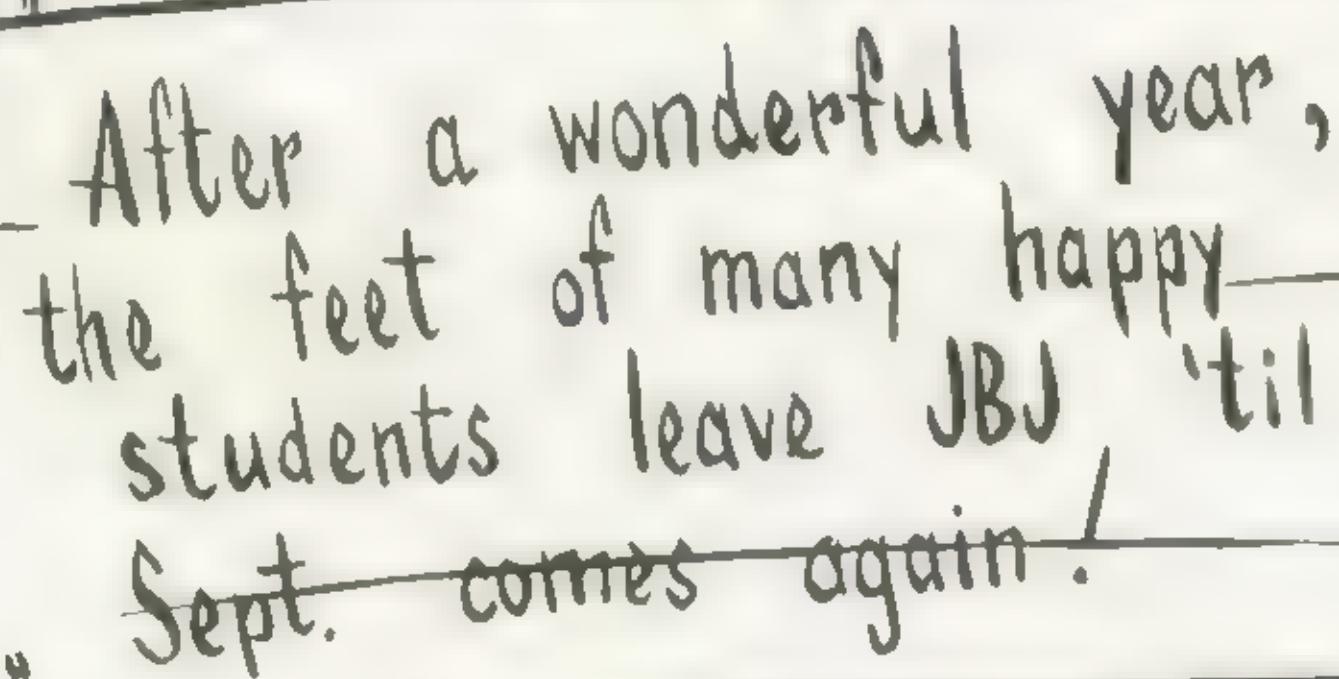 After a wonderful year,
the feet of many happy
students leave JBJ 'til
Sept. comes again!